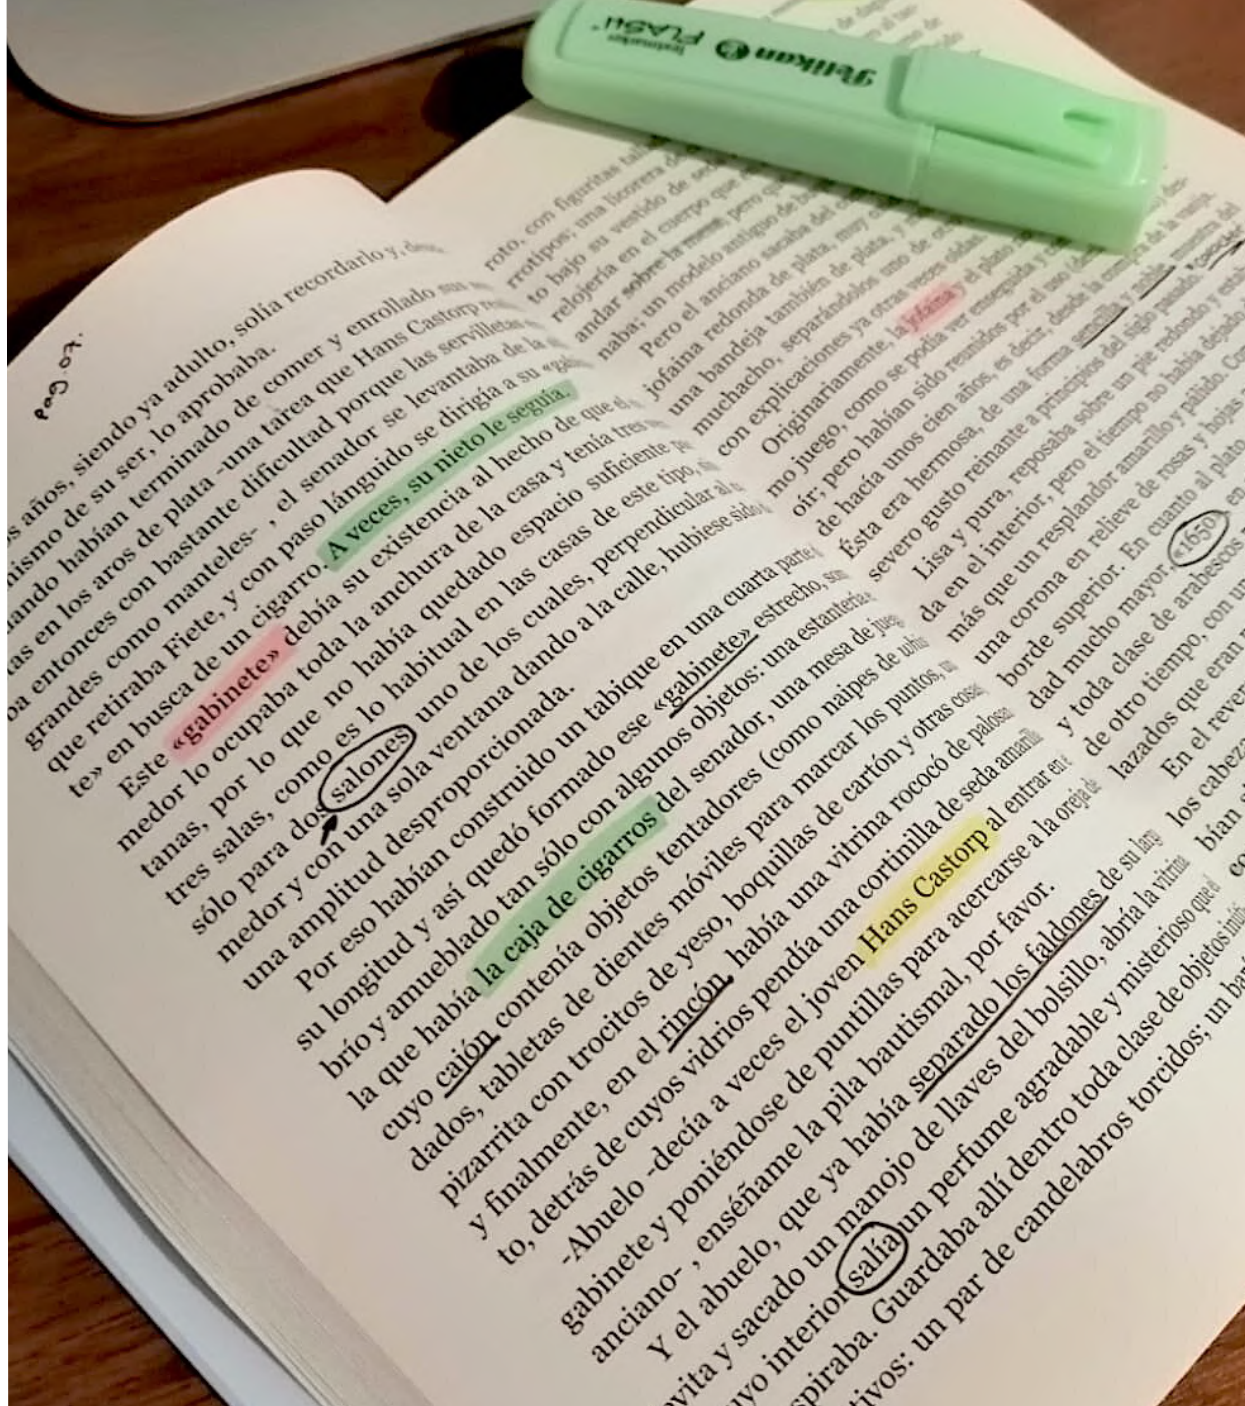 pag. 07.
s años, siendo ya adulto, solía recordarlo y,
mismo de su ser, lo aprobaba.
habían terminado de comer y enrollado sus
as en los aros de plata -una tarea que Hans Castorp
ba entonces con bastante dificultad porque las servilletas
grandes como manteles- , el senador se levantaba de la
que retiraba Fiete, y con paso lánguido se dirigía a su
te» en busca de un cigarro. A veces, su nieto le seguía.
Este «gabinete» debía su existencia al hecho de que el
medor lo ocupaba toda la anchura de la casa y tenía tres
tanas, por lo que no había quedado espacio suficiente
tres salas, como es lo habitual en las casas de este tipo,
sólo para dos salones uno de los cuales, perpendicular al
medor y con una sola ventana dando a la calle, hubiese sido
una amplitud desproporcionada.
Por eso habían construido un tabique en una cuarta parte
su longitud y así quedó formado ese «gabinete» estrecho,
brío y amueblado tan sólo con algunos objetos: una estantería
la que había la caja de cigarros del senador, una mesa de
cuyo cajón contenía objetos tentadores (como naipes de
dados, tabletas de dientes móviles para marcar los puntos,
pizarrita con trocitos de yeso, boquillas de cartón y otras cosas
y finalmente, en el rincón, había una vitrina rococó de
to, detrás de cuyos vidrios pendía una cortinilla de seda
-Abuelo -decía a veces el joven Hans Castorp al entrar en
gabinete y poniéndose de puntillas para acercarse a la oreja de
anciano- , enséñame la pila bautismal, por favor.
Y el abuelo, que ya había separado los faldones de su
evita y sacado un manojo de llaves del bolsillo, abría la vitrina
uyo interior salía un perfume agradable y misterioso que el
spiraba. Guardaba allí dentro toda clase de objetos
tivos: un par de candelabros torcidos; un
Pelikan
textmarker
FLASH
roto, con figuritas
rrotipos; una licorera
to bajo su vestido de
relojería en el cuerpo que
andar sobre la mesa, pero
naba; un modelo antiguo de
Pero el anciano sacaba del
jofaina redonda de plata, muy
una bandeja también de plata, y
muchacho, separándolos uno de
con explicaciones ya otras veces oídas.
Originariamente, la jofaina y el plato
mo juego, como se podía ver enseguida y
oír; pero habían sido reunidos por el uso
de hacía unos cien años, es decir, desde la compra de la
Ésta era hermosa, de una forma sencilla y noble, muestra del
severo gusto reinante a principios del siglo pasado.
Lisa y pura, reposaba sobre un pie redondo y
da en el interior, pero el tiempo no había dejado
más que un resplandor amarillo y pálido.
una corona en relieve de rosas y hojas
borde superior. En cuanto al plato,
dad mucho mayor, «1650», en
y toda clase de arabescos
de otro tiempo, con
lazados que eran
En el
los
bían